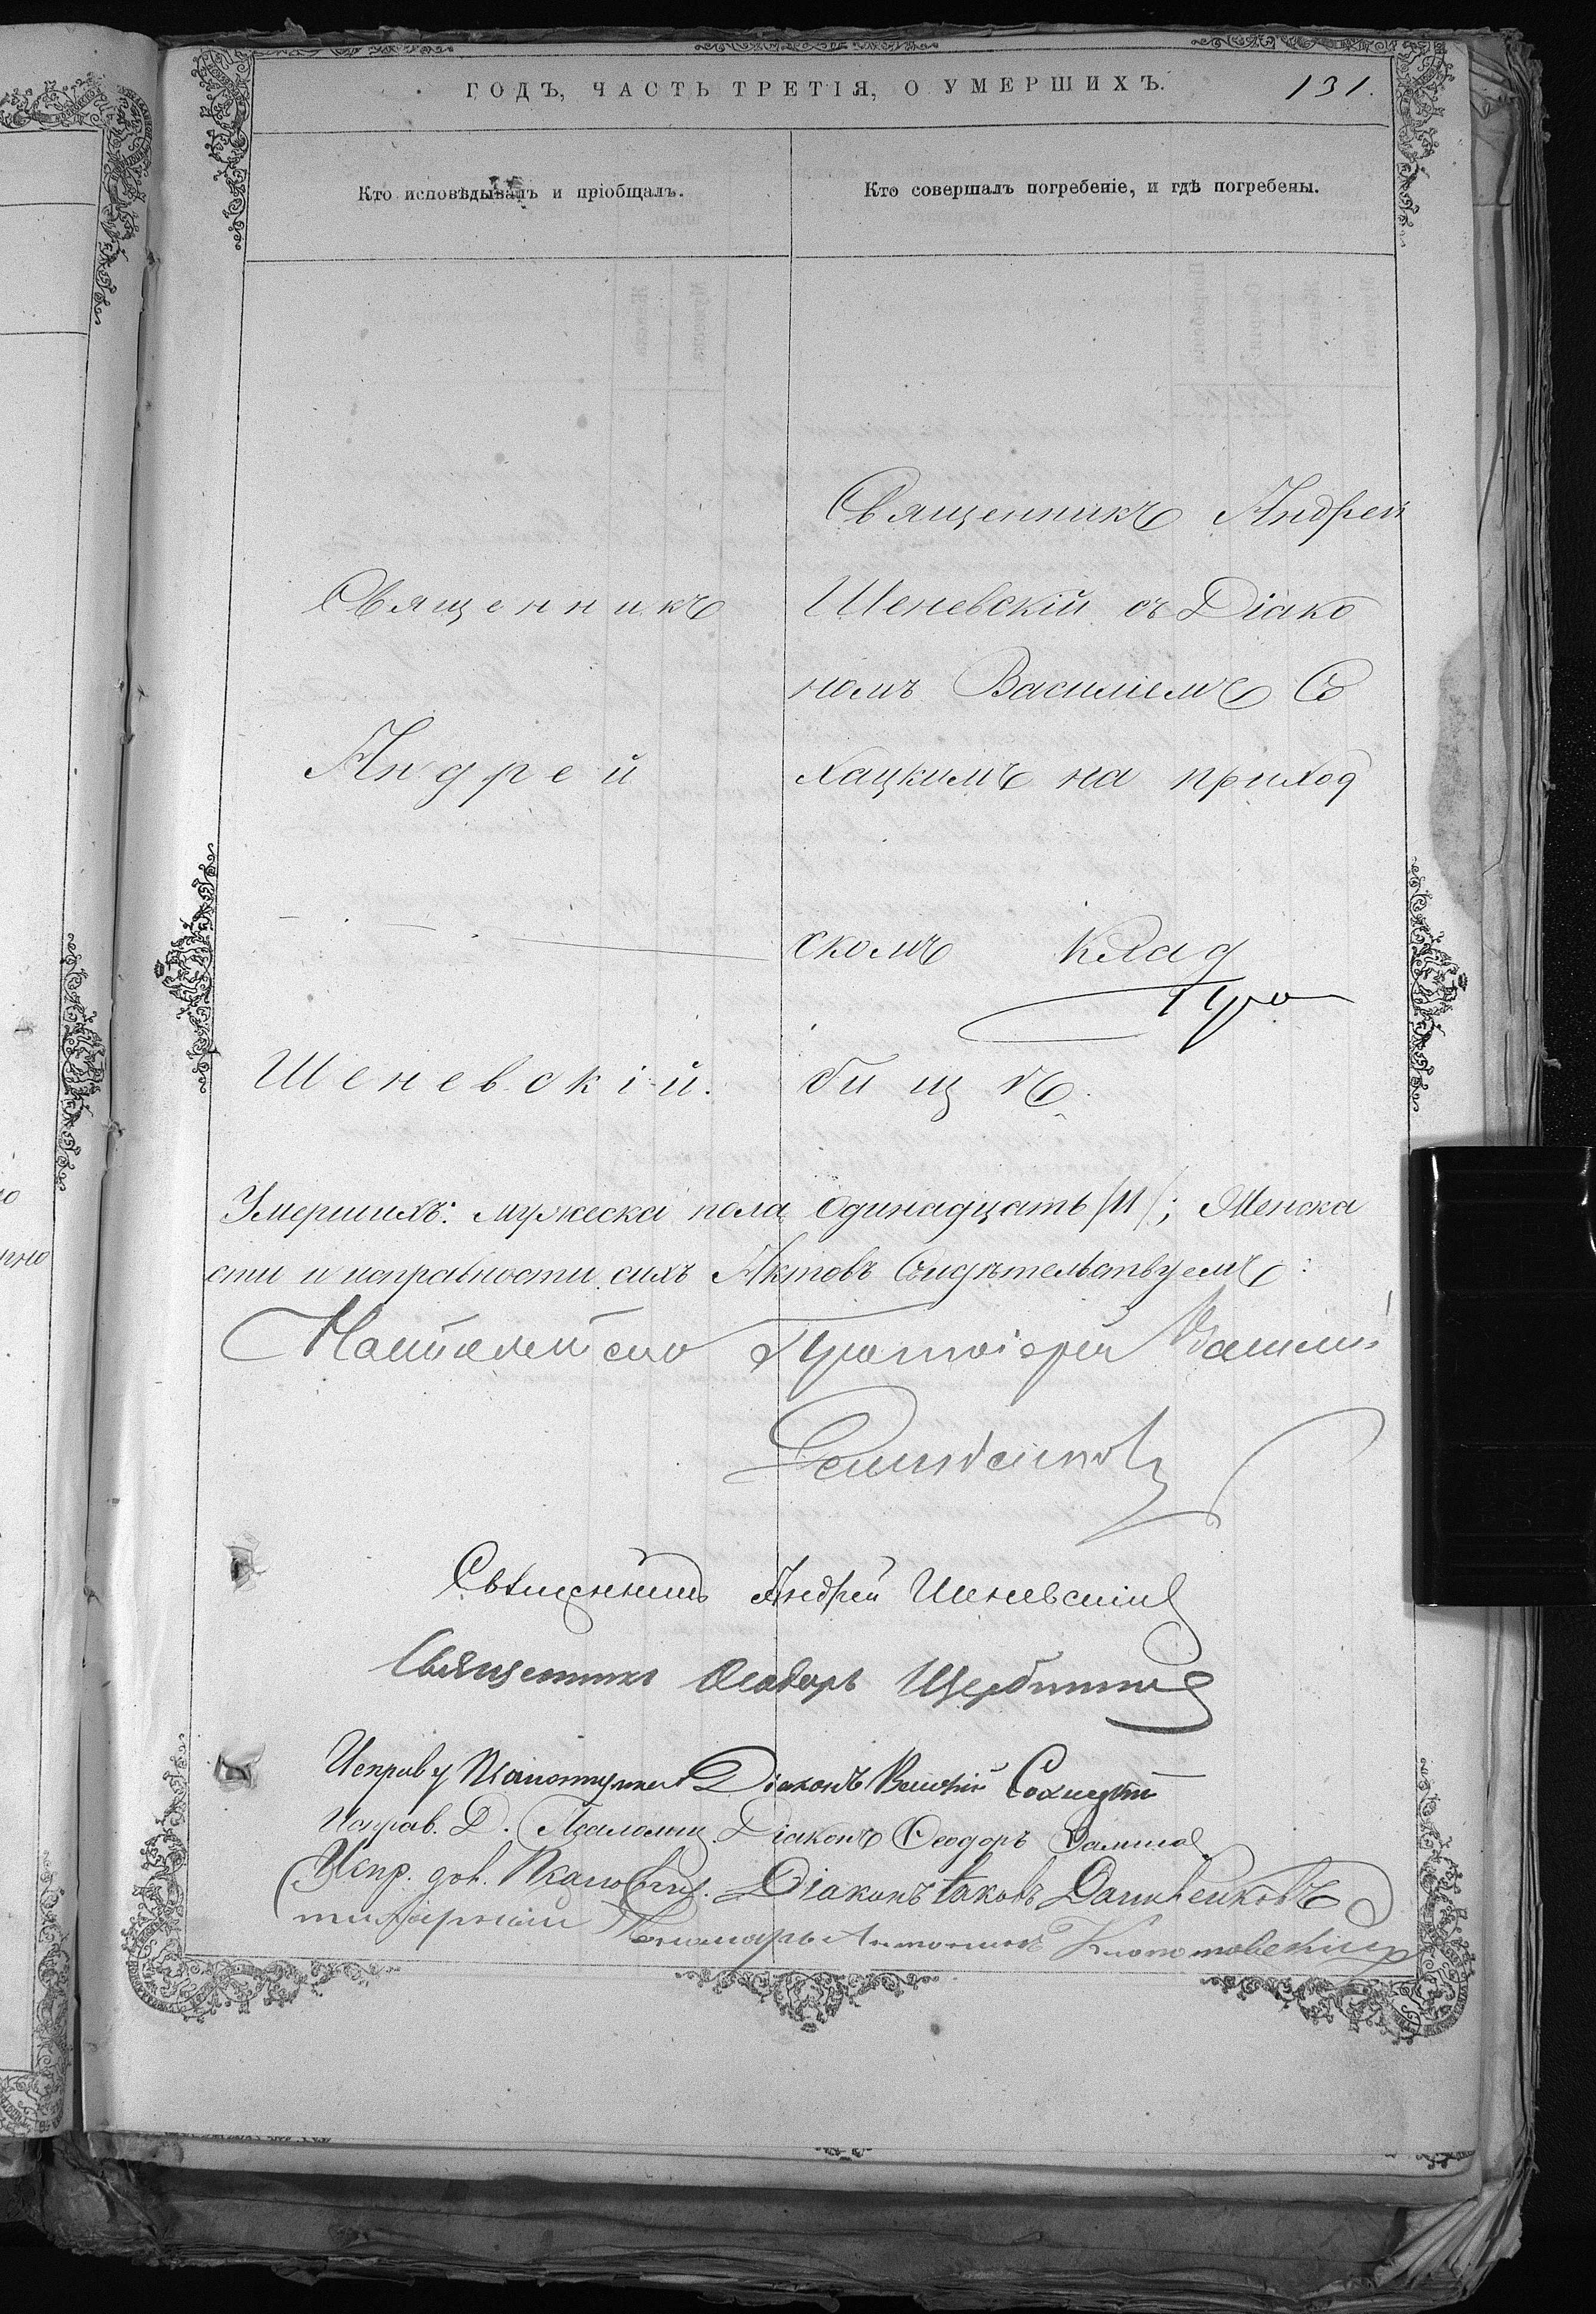 ГОДЪ, ЧАСТЬ ТРЕТІЯ, О УМЕРШИХЪ.
131.
Кто исповѣдывалъ и пріобщалъ.
Кто совершалъ погребеніе, и гдѣ погребены.
Священникъ
Андрей
Шеневскій.
Священникъ Андрей
Шеневскій съ Діако
номъ Василіемъ Со
хацкимъ на приход
скомъ клад
бищѣ.
Умершихъ: мужеска пола одинадцать /11/; Женска
сти и исправности сихъ Актовъ свидѣтельствуемъ:
Настоятель Протоіерей Василій
Священникъ Андрей Шеневскій
Священникъ Ѳеодоръ Щербина
Исправ д Псаломщика Діаконъ Василій Сохацкій
Исправ. Д. Псаломщ. Діаконъ Ѳеодоръ
Испр. дол. Псаломщ. Діаконъ Іаковъ Даниленковъ
Пономарь Антоній